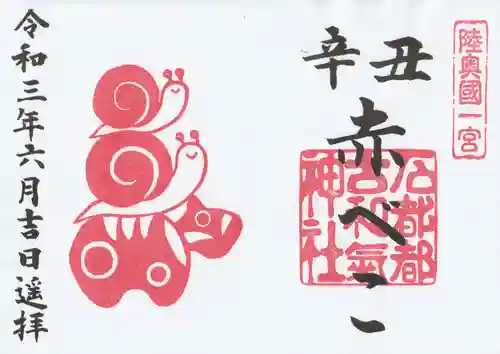 陸奥國一宮
辛丑
赤べこ
石都都
古和氣
神社
令和三年六月吉日遥拝